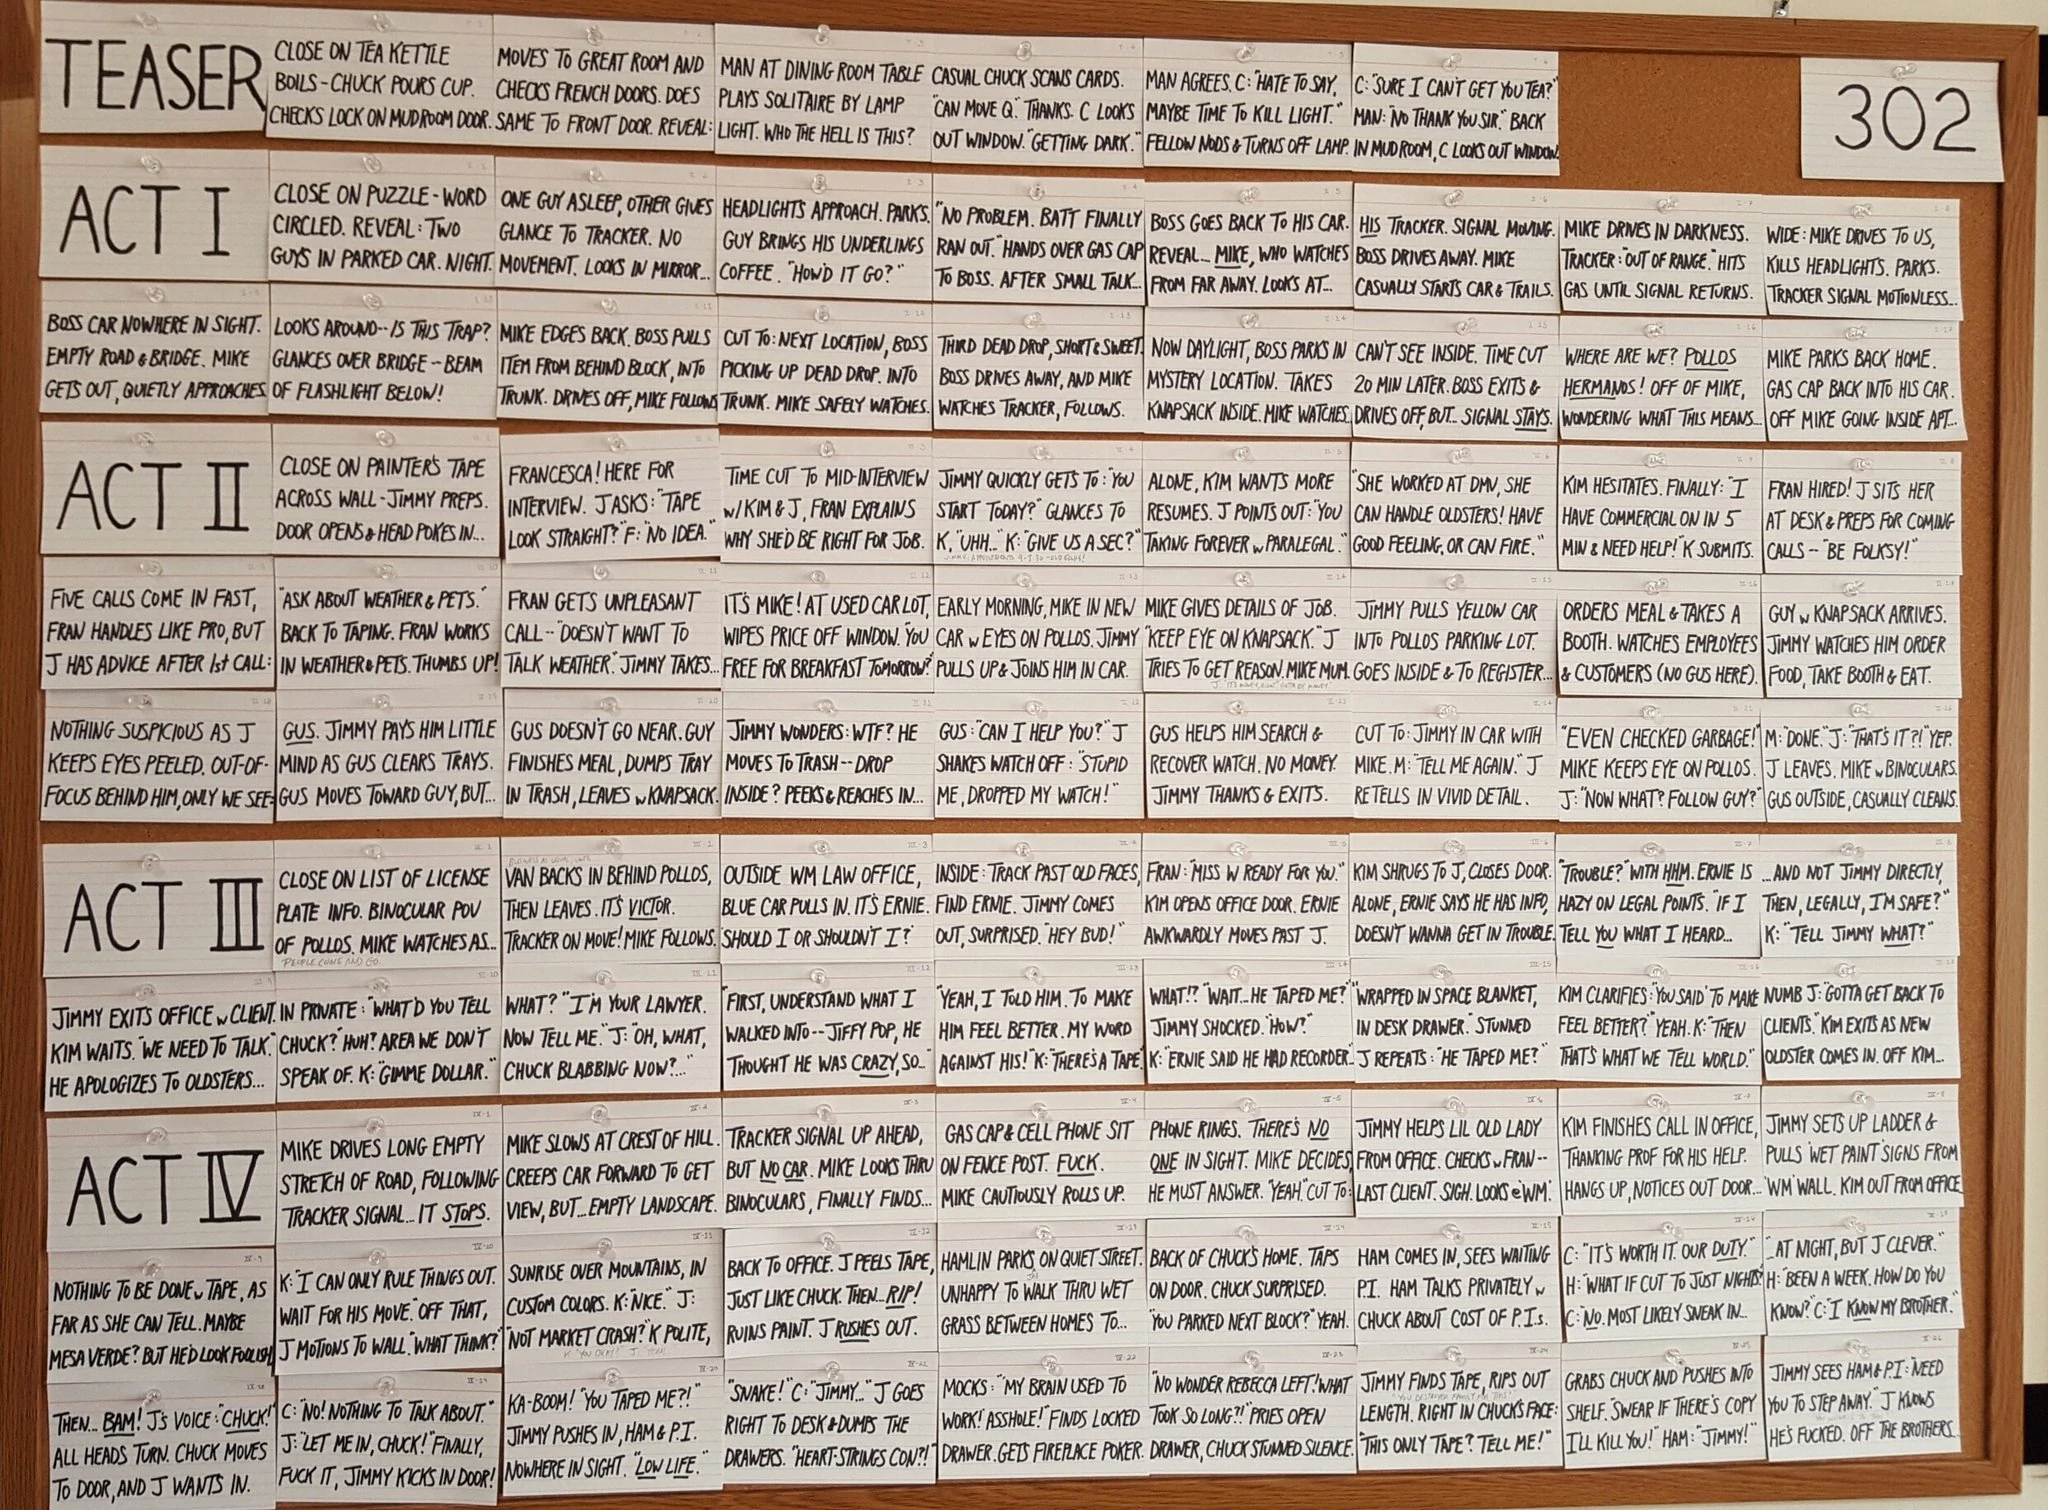 TEASER
CLOSE ON TEA KETTLE
BOILS - CHUCK POURS CUP.
CHECKS LOCK ON MUDROOM DOOR.
MOVES TO GREAT ROOM AND
CHECKS FRENCH DOORS. DOES
SAME TO FRONT DOOR. REVEAL:
MAN AT DINING ROOM TABLE
PLAYS SOLITAIRE BY LAMP
LIGHT. WHO THE HELL IS THIS?
CASUAL CHUCK SCANS CARDS.
"CAN MOVE Q." THANKS. C LOOKS
OUT WINDOW. "GETTING DARK."
MAN AGREES. C: "HATE TO SAY,
MAYBE TIME TO KILL LIGHT."
FELLOW NODS & TURNS OFF LAMP.
C: "SURE I CAN'T GET YOU TEA?"
MAN: "NO THANK YOU SIR." BACK
IN MUDROOM, C LOOKS OUT WINDOW.
302
ACT I
CLOSE ON PUZZLE - WORD
CIRCLED. REVEAL: TWO
GUYS IN PARKED CAR. NIGHT.
ONE GUY ASLEEP, OTHER GIVES
GLANCE TO TRACKER. NO
MOVEMENT. LOOKS IN MIRROR...
HEADLIGHTS APPROACH. PARKS.
GUY BRINGS HIS UNDERLINGS
COFFEE. "HOW'D IT GO?"
"NO PROBLEM. BATT FINALLY
RAN OUT." HANDS OVER GAS CAP
TO BOSS. AFTER SMALL TALK...
BOSS GOES BACK TO HIS CAR.
REVEAL... MIKE, WHO WATCHES
FROM FAR AWAY. LOOKS AT...
HIS TRACKER. SIGNAL MOVING.
BOSS DRIVES AWAY. MIKE
CASUALLY STARTS CAR & TRAILS.
MIKE DRIVES IN DARKNESS.
TRACKER: "OUT OF RANGE." HITS
GAS UNTIL SIGNAL RETURNS.
WIDE: MIKE DRIVES TO US,
KILLS HEADLIGHTS. PARKS.
TRACKER SIGNAL MOTIONLESS...
BOSS CAR NOWHERE IN SIGHT.
EMPTY ROAD & BRIDGE. MIKE
GETS OUT, QUIETLY APPROACHES.
LOOKS AROUND -- IS THIS TRAP?
GLANCES OVER BRIDGE -- BEAM
OF FLASHLIGHT BELOW!
MIKE EDGES BACK. BOSS PULLS
ITEM FROM BEHIND BLOCK, INTO
TRUNK. DRIVES OFF, MIKE FOLLOWS
CUT TO: NEXT LOCATION, BOSS
PICKING UP DEAD DROP. INTO
TRUNK. MIKE SAFELY WATCHES.
THIRD DEAD DROP, SHORT & SWEET.
BOSS DRIVES AWAY, AND MIKE
WATCHES TRACKER, FOLLOWS.
NOW DAYLIGHT, BOSS PARKS IN
MYSTERY LOCATION. TAKES
KNAPSACK INSIDE. MIKE WATCHES..
CAN'T SEE INSIDE. TIME CUT
20 MIN LATER. BOSS EXITS &
DRIVES OFF, BUT... SIGNAL STAYS.
WHERE ARE WE? POLLOS
HERMANOS! OFF OF MIKE,
WONDERING WHAT THIS MEANS...
MIKE PARKS BACK HOME.
GAS CAP BACK INTO HIS CAR.
OFF MIKE GOING INSIDE APT...
ACT II
CLOSE ON PAINTER'S TAPE
ACROSS WALL - JIMMY PREPS.
DOOR OPENS & HEAD POKES IN...
FRANCESCA! HERE FOR
INTERVIEW. J ASKS: "TAPE
LOOK STRAIGHT?" F: "NO IDEA."
TIME CUT TO MID-INTERVIEW
w/ KIM & J, FRAN EXPLAINS
WHY SHE'D BE RIGHT FOR JOB.
JIMMY QUICKLY GETS TO: "YOU
START TODAY?" GLANCES TO
K, "UHH..." K: "GIVE US A SEC?"
ALONE, KIM WANTS MORE
RESUMES. J POINTS OUT: "YOU
TAKING FOREVER w PARALEGAL."
"SHE WORKED AT DMV, SHE
CAN HANDLE OLDSTERS! HAVE
GOOD FEELING, OR CAN FIRE."
KIM HESITATES. FINALLY: "I
HAVE COMMERCIAL ON IN 5
MIN & NEED HELP!" K SUBMITS.
FRAN HIRED! J SITS HER
AT DESK & PREPS FOR COMING
CALLS -- "BE FOLKSY!"
FIVE CALLS COME IN FAST,
FRAN HANDLES LIKE PRO, BUT
J HAS ADVICE AFTER 1st CALL:
"ASK ABOUT WEATHER & PETS."
BACK TO TAPING. FRAN WORKS
IN WEATHER & PETS. THUMBS UP!
FRAN GETS UNPLEASANT
CALL -- "DOESN'T WANT TO
TALK WEATHER." JIMMY TAKES...
IT'S MIKE! AT USED CAR LOT,
WIPES PRICE OFF WINDOW. "YOU
FREE FOR BREAKFAST TOMORROW?"
EARLY MORNING, MIKE IN NEW
CAR w EYES ON POLLOS. JIMMY
PULLS UP & JOINS HIM IN CAR.
MIKE GIVES DETAILS OF JOB.
"KEEP EYE ON KNAPSACK." J
TRIES TO GET REASON. MIKE MUM.
JIMMY PULLS YELLOW CAR
INTO POLLOS PARKING LOT.
GOES INSIDE & TO REGISTER...
ORDERS MEAL & TAKES A
BOOTH. WATCHES EMPLOYEES
& CUSTOMERS (NO GUS HERE).
GUY w KNAPSACK ARRIVES.
JIMMY WATCHES HIM ORDER
FOOD, TAKE BOOTH & EAT.
NOTHING SUSPICIOUS AS J
KEEPS EYES PEELED. OUT-OF-
FOCUS BEHIND HIM, ONLY WE SEE:
GUS. JIMMY PAYS HIM LITTLE
MIND AS GUS CLEARS TRAYS.
GUS MOVES TOWARD GUY, BUT...
GUS DOESN'T GO NEAR. GUY
FINISHES MEAL, DUMPS TRAY
IN TRASH, LEAVES w KNAPSACK.
JIMMY WONDERS: WTF? HE
MOVES TO TRASH -- DROP
INSIDE? PEEKS & REACHES IN...
GUS: "CAN I HELP YOU?" J
SHAKES WATCH OFF: "STUPID
ME, DROPPED MY WATCH!"
GUS HELPS HIM SEARCH &
RECOVER WATCH. NO MONEY.
JIMMY THANKS & EXITS.
CUT TO: JIMMY IN CAR WITH
MIKE. M: "TELL ME AGAIN." J
RETELLS IN VIVID DETAIL.
"EVEN CHECKED GARBAGE!"
MIKE KEEPS EYE ON POLLOS.
J: "NOW WHAT? FOLLOW GUY?"
M: "DONE." J: "THAT'S IT?!" "YEP.
J LEAVES. MIKE w BINOCULARS.
GUS OUTSIDE, CASUALLY CLEANS.
ACT III
CLOSE ON LIST OF LICENSE
PLATE INFO. BINOCULAR POV
OF POLLOS. MIKE WATCHES AS...
PEOPLE COME AND GO.
BUSINESS AS USUAL, UNTIL
VAN BACKS IN BEHIND POLLOS,
THEN LEAVES. IT'S VICTOR.
TRACKER ON MOVE! MIKE FOLLOWS.
OUTSIDE WM LAW OFFICE,
BLUE CAR PULLS IN. IT'S ERNIE.
'SHOULD I OR SHOULDN'T I?'
INSIDE: TRACK PAST OLD FACES,
FIND ERNIE. JIMMY COMES
OUT, SURPRISED. "HEY BUD!"
FRAN: "MISS W READY FOR YOU."
KIM OPENS OFFICE DOOR. ERNIE
AWKWARDLY MOVES PAST J.
KIM SHRUGS TO J, CLOSES DOOR.
ALONE, ERNIE SAYS HE HAS INFO,
DOESN'T WANNA GET IN TROUBLE.
"TROUBLE?" WITH HHM. ERNIE IS
HAZY ON LEGAL POINTS. "IF I
TELL YOU WHAT I HEARD...
...AND NOT JIMMY DIRECTLY,
THEN, LEGALLY, I'M SAFE?"
K: "TELL JIMMY WHAT?"
JIMMY EXITS OFFICE w CLIENT.
KIM WAITS. "WE NEED TO TALK."
HE APOLOGIZES TO OLDSTERS...
IN PRIVATE: "WHAT'D YOU TELL
CHUCK?" HUH? AREA WE DON'T
SPEAK OF. K: "GIMME DOLLAR."
WHAT? "I'M YOUR LAWYER.
NOW TELL ME." J: "OH, WHAT,
CHUCK BLABBING NOW?..."
"FIRST, UNDERSTAND WHAT I
WALKED INTO -- JIFFY POP, HE
THOUGHT HE WAS CRAZY, SO...
"YEAH, I TOLD HIM. TO MAKE
HIM FEEL BETTER. MY WORD
AGAINST HIS! K: "THERE'S A TAPE."
WHAT!? "WAIT...HE TAPED ME?"
JIMMY SHOCKED. "HOW?"
K: "ERNIE SAID HE HAD RECORDER
"WRAPPED IN SPACE BLANKET,
IN DESK DRAWER." STUNNED
J REPEATS: "HE TAPED ME?"
KIM CLARIFIES: "YOU SAID 'TO MAKE
FEEL BETTER?'" YEAH. K: "THEN
THAT'S WHAT WE TELL WORLD."
NUMB J: "GOTTA GET BACK TO
CLIENTS." KIM EXITS AS NEW
OLDSTER COMES IN. OFF KIM...
ACT IV
MIKE DRIVES LONG EMPTY
STRETCH OF ROAD, FOLLOWING
TRACKER SIGNAL... IT STOPS.
MIKE SLOWS AT CREST OF HILL.
CREEPS CAR FORWARD TO GET
VIEW, BUT... EMPTY LANDSCAPE.
TRACKER SIGNAL UP AHEAD,
BUT NO CAR. MIKE LOOKS THRU
BINOCULARS, FINALLY FINDS...
GAS CAP & CELL PHONE SIT
ON FENCE POST. FUCK.
MIKE CAUTIOUSLY ROLLS UP.
PHONE RINGS. THERE'S NO
ONE IN SIGHT. MIKE DECIDES,
HE MUST ANSWER. "YEAH." CUT TO:
JIMMY HELPS LIL OLD LADY
FROM OFFICE. CHECKS w FRAN --
LAST CLIENT. SIGH. LOOKS @ 'WM'.
KIM FINISHES CALL IN OFFICE,
THANKING PROF FOR HIS HELP.
HANGS UP, NOTICES OUT DOOR...
JIMMY SETS UP LADDER &
PULLS 'WET PAINT' SIGNS FROM
'WM' WALL. KIM OUT FROM OFFICE
NOTHING TO BE DONE w TAPE, AS
FAR AS SHE CAN TELL. MAYBE
MESA VERDE? BUT HE'D LOOK FOOLISH
K: "I CAN ONLY RULE THINGS OUT.
WAIT FOR HIS MOVE." OFF THAT,
J MOTIONS TO WALL. "WHAT THINK?"
SUNRISE OVER MOUNTAINS, IN
CUSTOM COLORS. K: "NICE." J:
"NOT MARKET CRASH?" K POLITE,
BACK TO OFFICE. J PEELS TAPE,
JUST LIKE CHUCK. THEN... RIP!
RUINS PAINT. J RUSHES OUT.
HAMLIN PARKS, ON QUIET STREET.
UNHAPPY TO WALK THRU WET
GRASS BETWEEN HOMES TO...
BACK OF CHUCK'S HOME. TAPS
ON DOOR. CHUCK SURPRISED.
"YOU PARKED NEXT BLOCK?" YEAH.
HAM COMES IN, SEES WAITING
P.I. HAM TALKS PRIVATELY w
CHUCK ABOUT COST OF P.I.s.
C: "IT'S WORTH IT. OUR DUTY."
H: "WHAT IF CUT TO JUST NIGHTS?"
C: "NO. MOST LIKELY SNEAK IN...
...AT NIGHT, BUT J CLEVER."
H: "BEEN A WEEK. HOW DO YOU
KNOW?" C: "I KNOW MY BROTHER."
THEN... BAM! J'S VOICE: "CHUCK!"
ALL HEADS TURN. CHUCK MOVES
TO DOOR, AND J WANTS IN.
C: "NO! NOTHING TO TALK ABOUT."
J: "LET ME IN, CHUCK!" FINALLY,
FUCK IT, JIMMY KICKS IN DOOR!
KA-BOOM! "YOU TAPED ME?!"
JIMMY PUSHES IN, HAM & P.I.
NOWHERE IN SIGHT. "LOW LIFE."
"SNAKE!" C: "JIMMY..." J GOES
RIGHT TO DESK & DUMPS THE
DRAWERS. "HEART-STRINGS CON?!"
MOCKS: "MY BRAIN USED TO
WORK! ASSHOLE!" FINDS LOCKED
DRAWER. GETS FIREPLACE POKER.
"NO WONDER REBECCA LEFT! WHAT
TOOK SO LONG?!" PRIES OPEN
DRAWER, CHUCK STUNNED SILENCE.
JIMMY FINDS TAPE, RIPS OUT
"YOU DESTROYED FAMILY FOR THIS"
LENGTH. RIGHT IN CHUCK'S FACE:
"THIS ONLY TAPE? TELL ME!"
GRABS CHUCK AND PUSHES INTO
SHELF. "SWEAR IF THERE'S COPY
I'LL KILL YOU!" HAM: "JIMMY!"
JIMMY SEES HAM & P.I: "NEED
YOU TO STEP AWAY." J KNOWS
HE'S FUCKED. OFF THE BROTHERS...